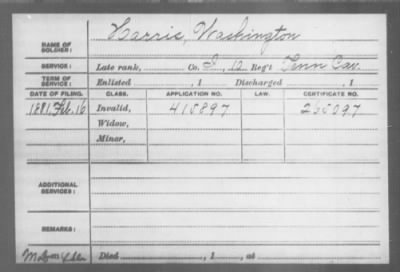 Harris, Washington
NAME OF SOLDIER:
SERVICE: Late rank, Co. I, 12 Reg't Tenn Cav.
TERM OF SERVICE: Enlisted , 1 Discharged , 1
DATE OF FILING. CLASS. APPLICATION NO. LAW. CERTIFICATE NO.
1881, Feb. 16 Invalid, 415897 265097
Widow,
Minor,
ADDITIONAL SERVICES:
REMARKS:
Died , 1 , at